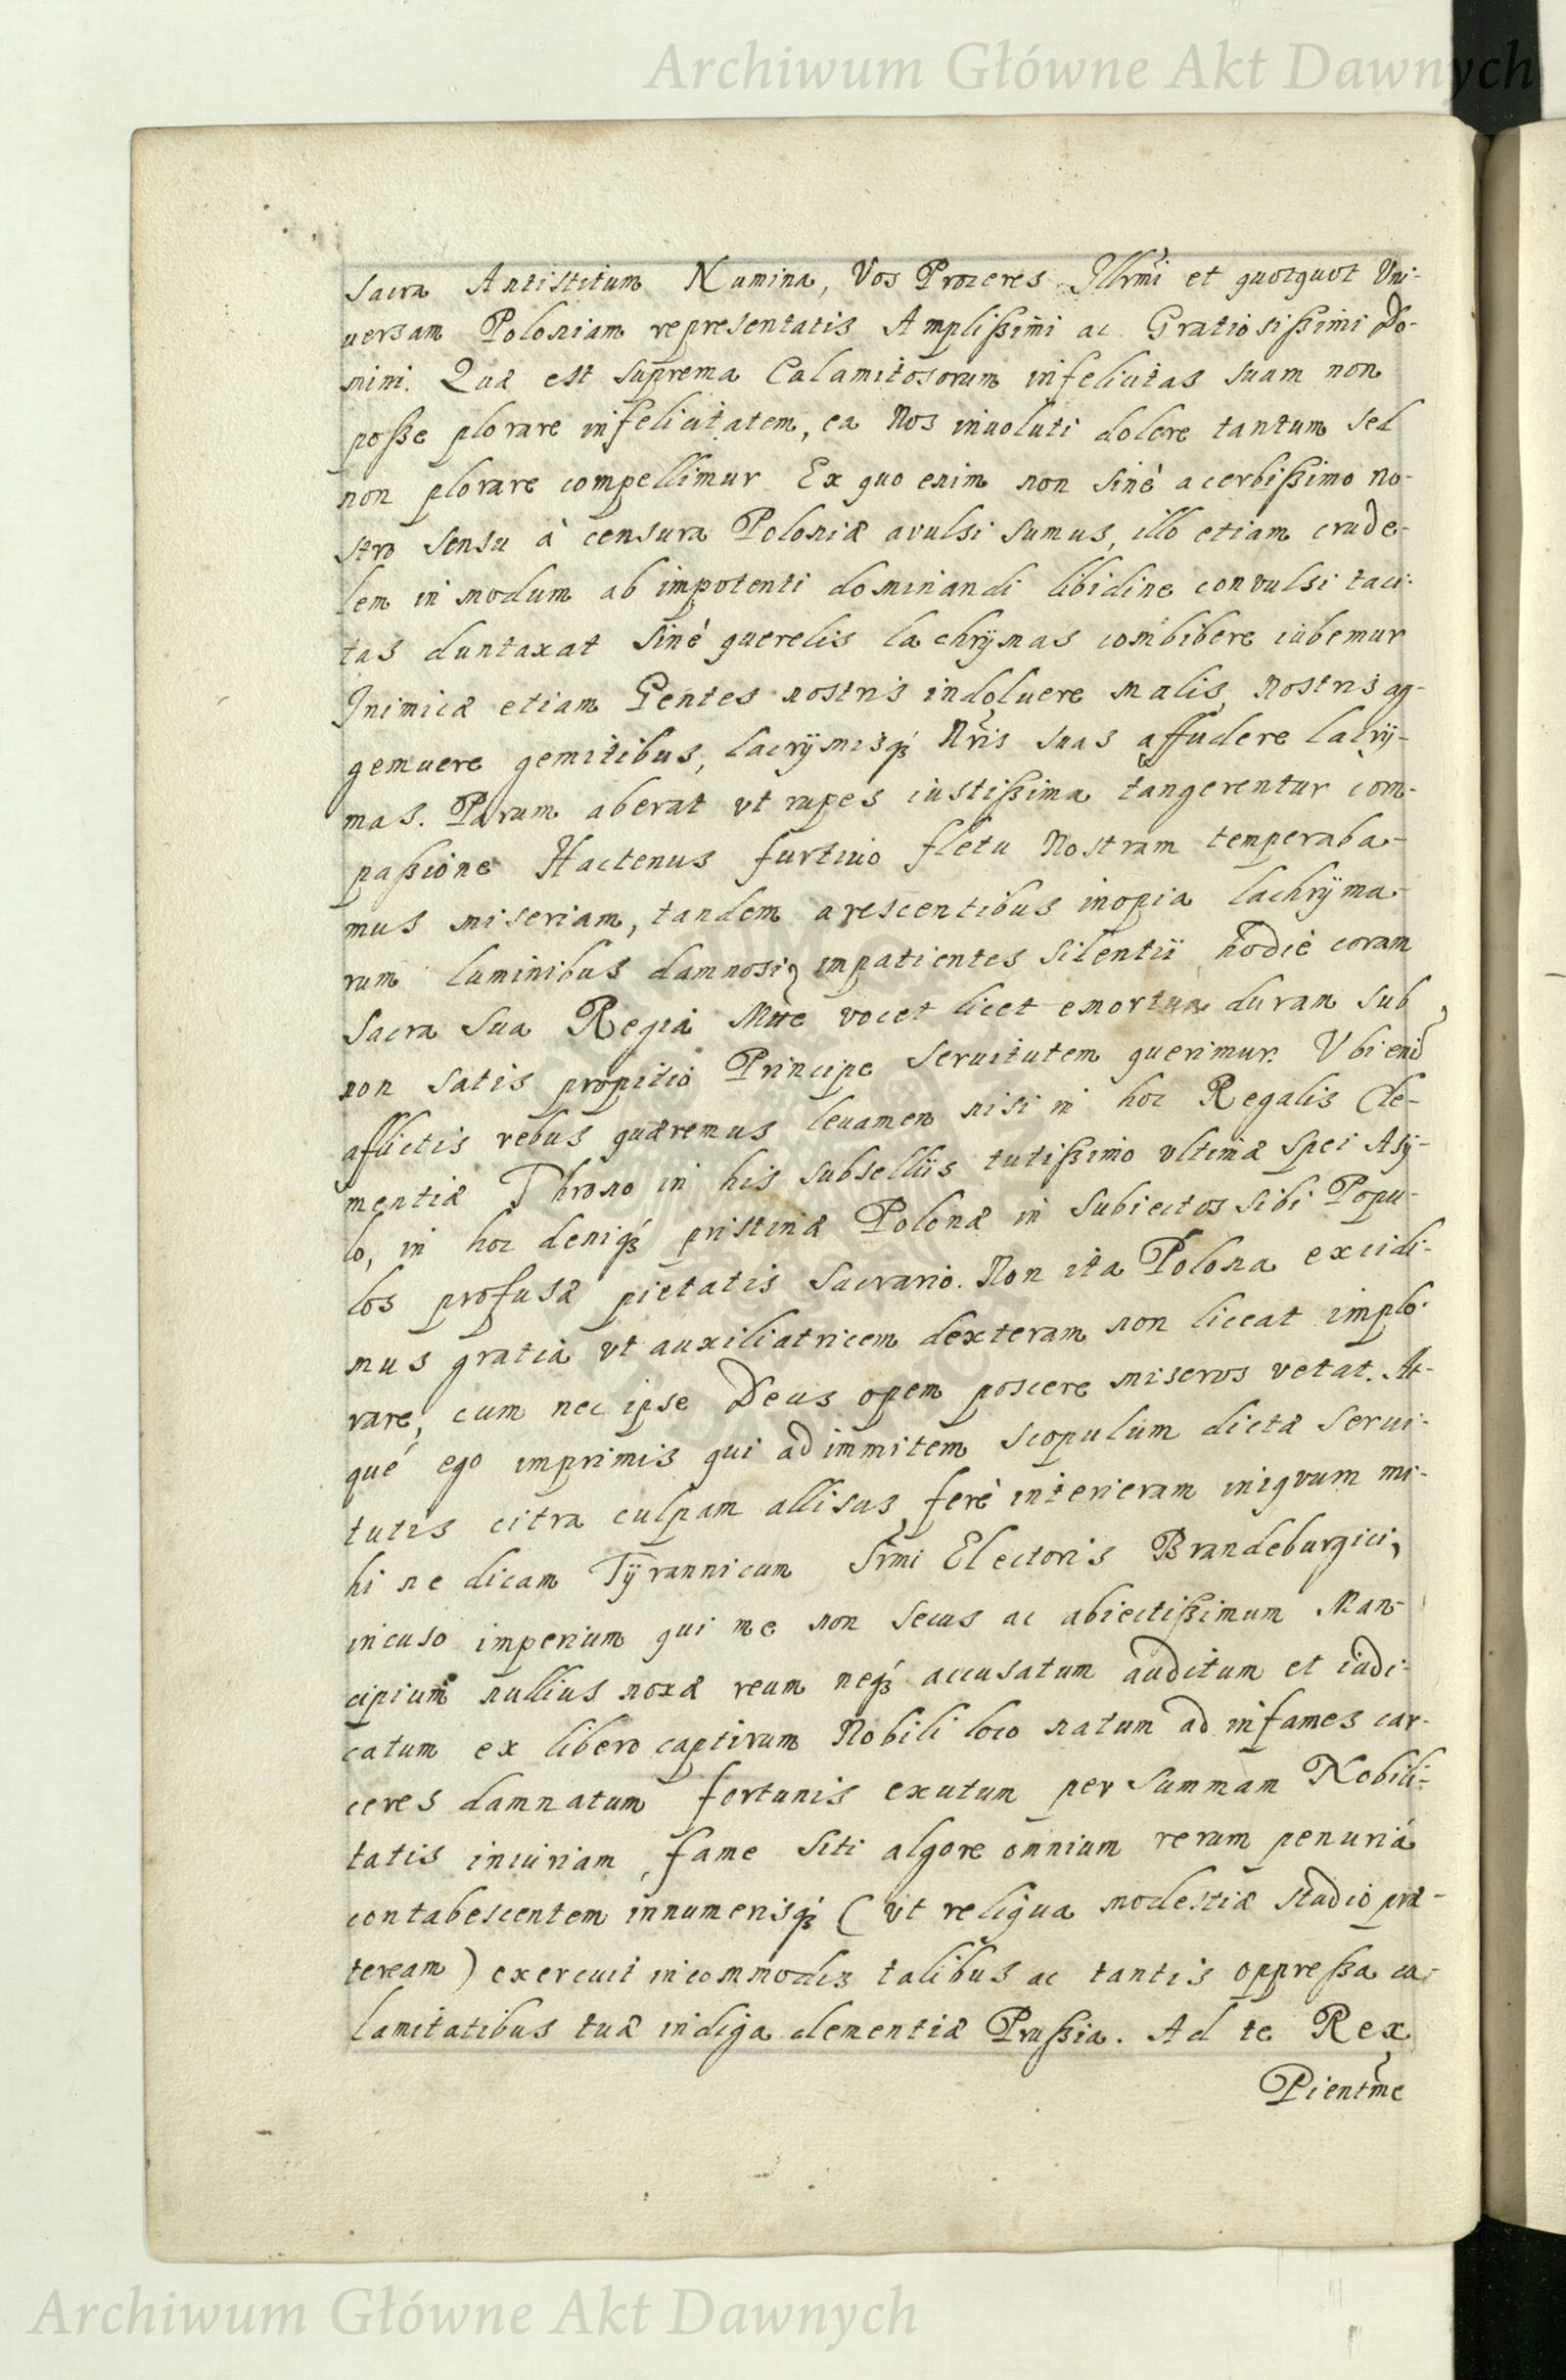 Archiwum Główne Akt Dawnych
sacra Antistitum Numina, Vos Proceres Illrmi et quotquot Vni-
uersam Poloniam representatis Amplißimi ac Gratiosißimi Do-
mini. Quæ est suprema Calamitosorum infelicitas suam non
poße plorare infelicitatem, ea Nos inuoluti dolere tantum sed
non plorare compellimur Ex quo enim non sinè acerbißimo no-
stro sensu à censura Poloniæ avulsi sumus, illo etiam crude-
lem in modum ab impotenti dominandi libidine convulsi taci-
tas duntaxat sinè querelis lachrÿmas combibere iubemur
Inimicæ etiam Gentes nostris indoluere malis, nostris ag-
gemuere gemitibus, lacrÿmisq́ Nris suas affudere lacrÿ-
mas. Parum aberat vt rupes iustißima tangerentur com-
paßione Hactenus furtiuo fletu Nostram temperaba-
mus miseriam, tandem arescentibus inopia lachrÿma-
rum luminibus damnosi, impatientes silentii hodiè coram
Sacra Sua Regiâ Mtte vocet licet emortua duram sub
non satis propitio Principe seruitutem querimur. Vbi enĩ
afflictis rebus quæremus leuamen nisi in hoc Regalis Cle-
mentiæ Throno in his subselliis tutißimo vltimæ spei Asÿ-
lo, in hoc deniq́ pristinæ Polonæ in subiectos sibi Popu-
los profusæ pietatis sacrario. Non ita Polona excidi-
mus gratiâ vt auxiliatricem dexteram non liceat implo-
rare, cum nec ipse Deus opem poscere miseros vetat. At-
qué ego imprimis qui ad immitem scopulum dictæ serui-
tutis citra culpam allisus ferè interieram iniquum mi-
hi ne dicam Tÿrannicum Srmi Electoris Brandeburgici,
incuso imperium qui me non secus ac abiectißimum Man-
cipium nullius noxæ reum neq́ accusatum auditum et iudi-
catum ex libero captivum Nobili loco natum ad infames car-
ceres damnatum fortunis exutum per summam Nobili-
tatis iniuriam, fame siti algore omnium rerum penuriâ
contabescentem innumerisq́ (vt reliqua modestiæ studio præ-
teream) exercuit incommodis talibus ac tantis oppreßa ca-
lamitatibus tuæ indiga clementiæ Prußia. Ad te Rex
Pientme
Archiwum Główne Akt Dawnych